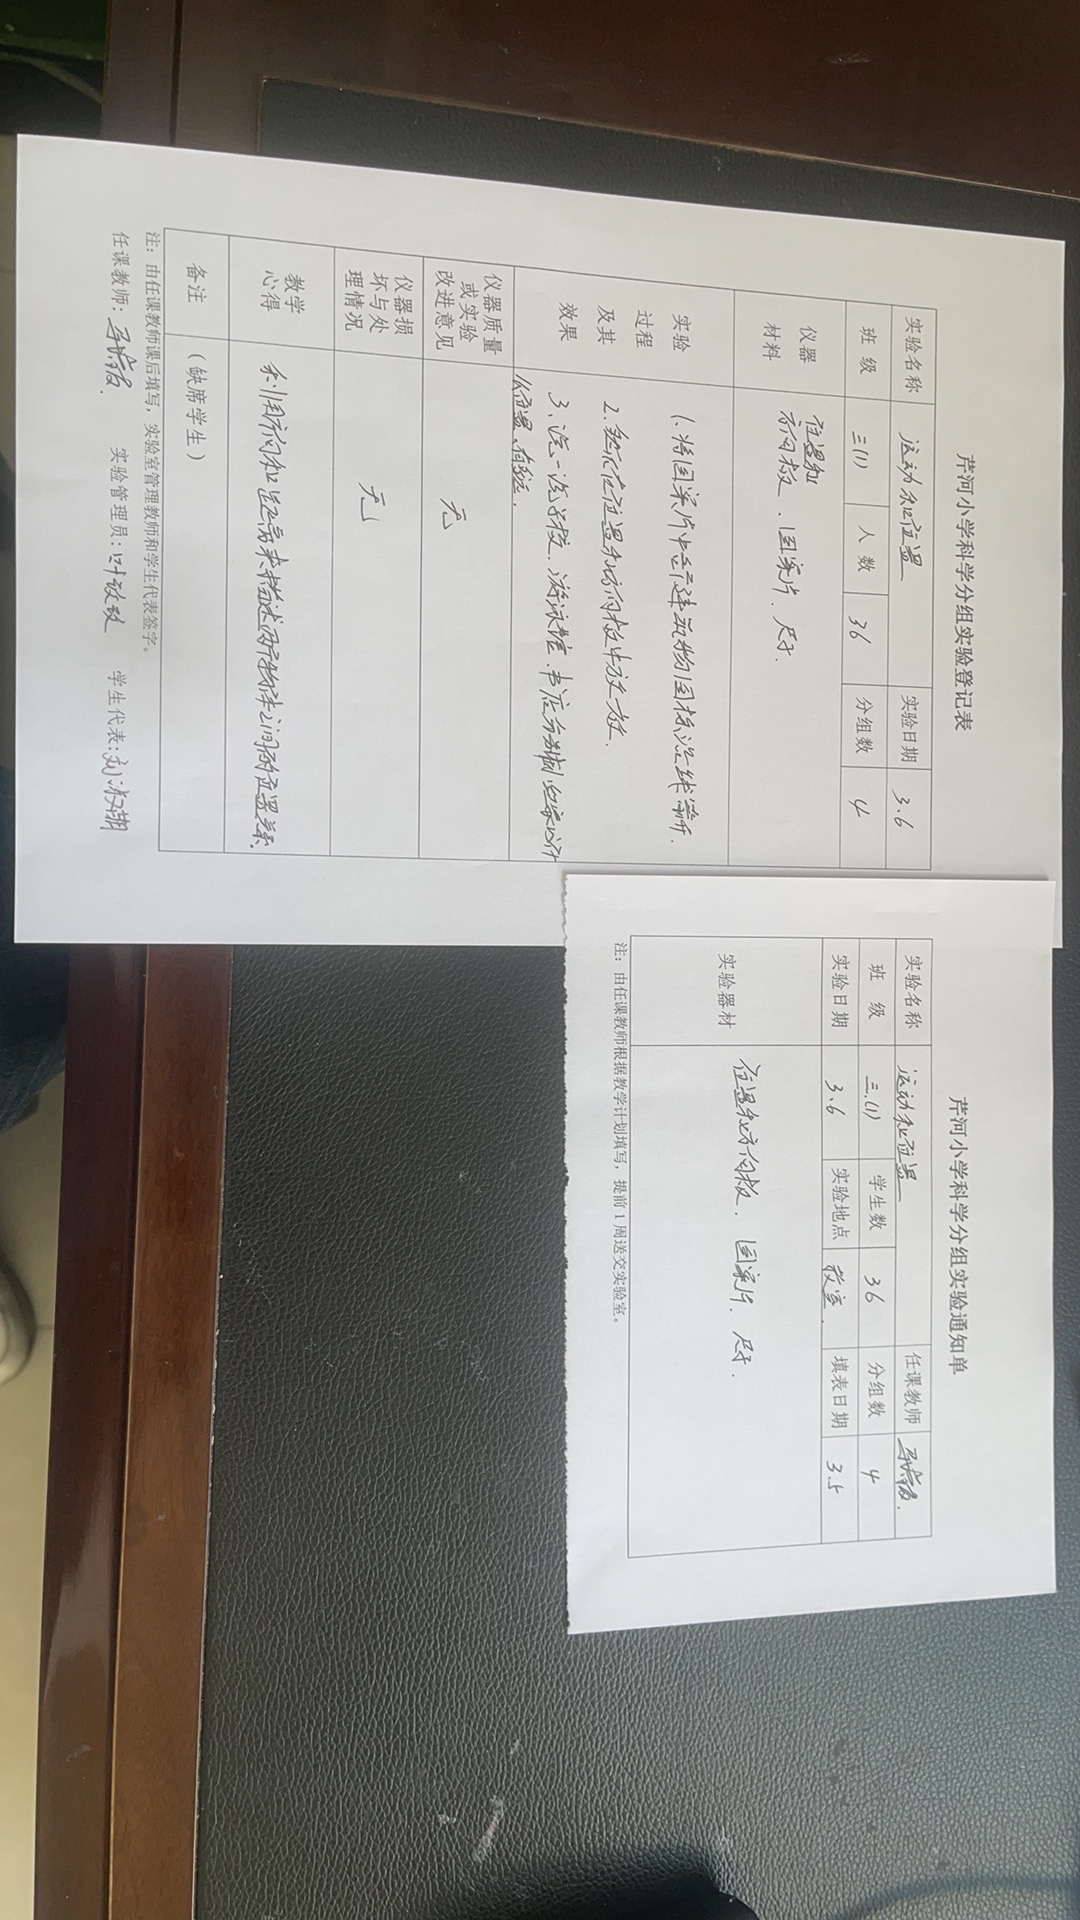 芹河小学科学分组实验登记表
实验名称 运动和位置 实验日期 3.6
班 级 三(1) 人 数 36 分组数 4
仪器 材料 位置和 方向板、图案片、尺子.
实验 过程 及其 效果
1. 将图案片中6个建筑物图标沿线剪开.
2. 然后在位置和方向板中放一放.
3、说一说学校、游泳馆、书店分别制
位置、
仪器质量 或实验 改进意见 无
仪器损 坏与处 理情况 无
教学 心得 利用方向和距离来描述两个物体之间的位置关系.
备注 (缺席学生)
注:由任课教师课后填写,实验室管理教师和学生代表签字。
任课教师: 实验管理员: 学生代表:
芹河小学科学分组实验通知单
实验名称 运动和位置 任课教师
班 级 三.(1) 学生数 36 分组数 4
实验日期 3.6 实验地点 教室. 填表日期 3.5
实验器材 位置和方向板、图案片. 尺子.
注:由任课教师根据教学计划填写,提前1周送交实验室。